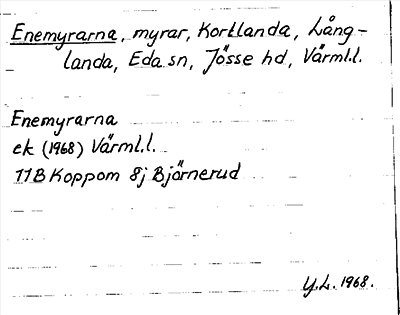 Enemyrarna, myrar, Kortlanda, Lång-
landa, Eda sn, Jösse hd, Värml.l.
Enemyrarna
ek (1968) Värml.l.
11B Koppom 8j Bjärnerud
Y.L. 1968.